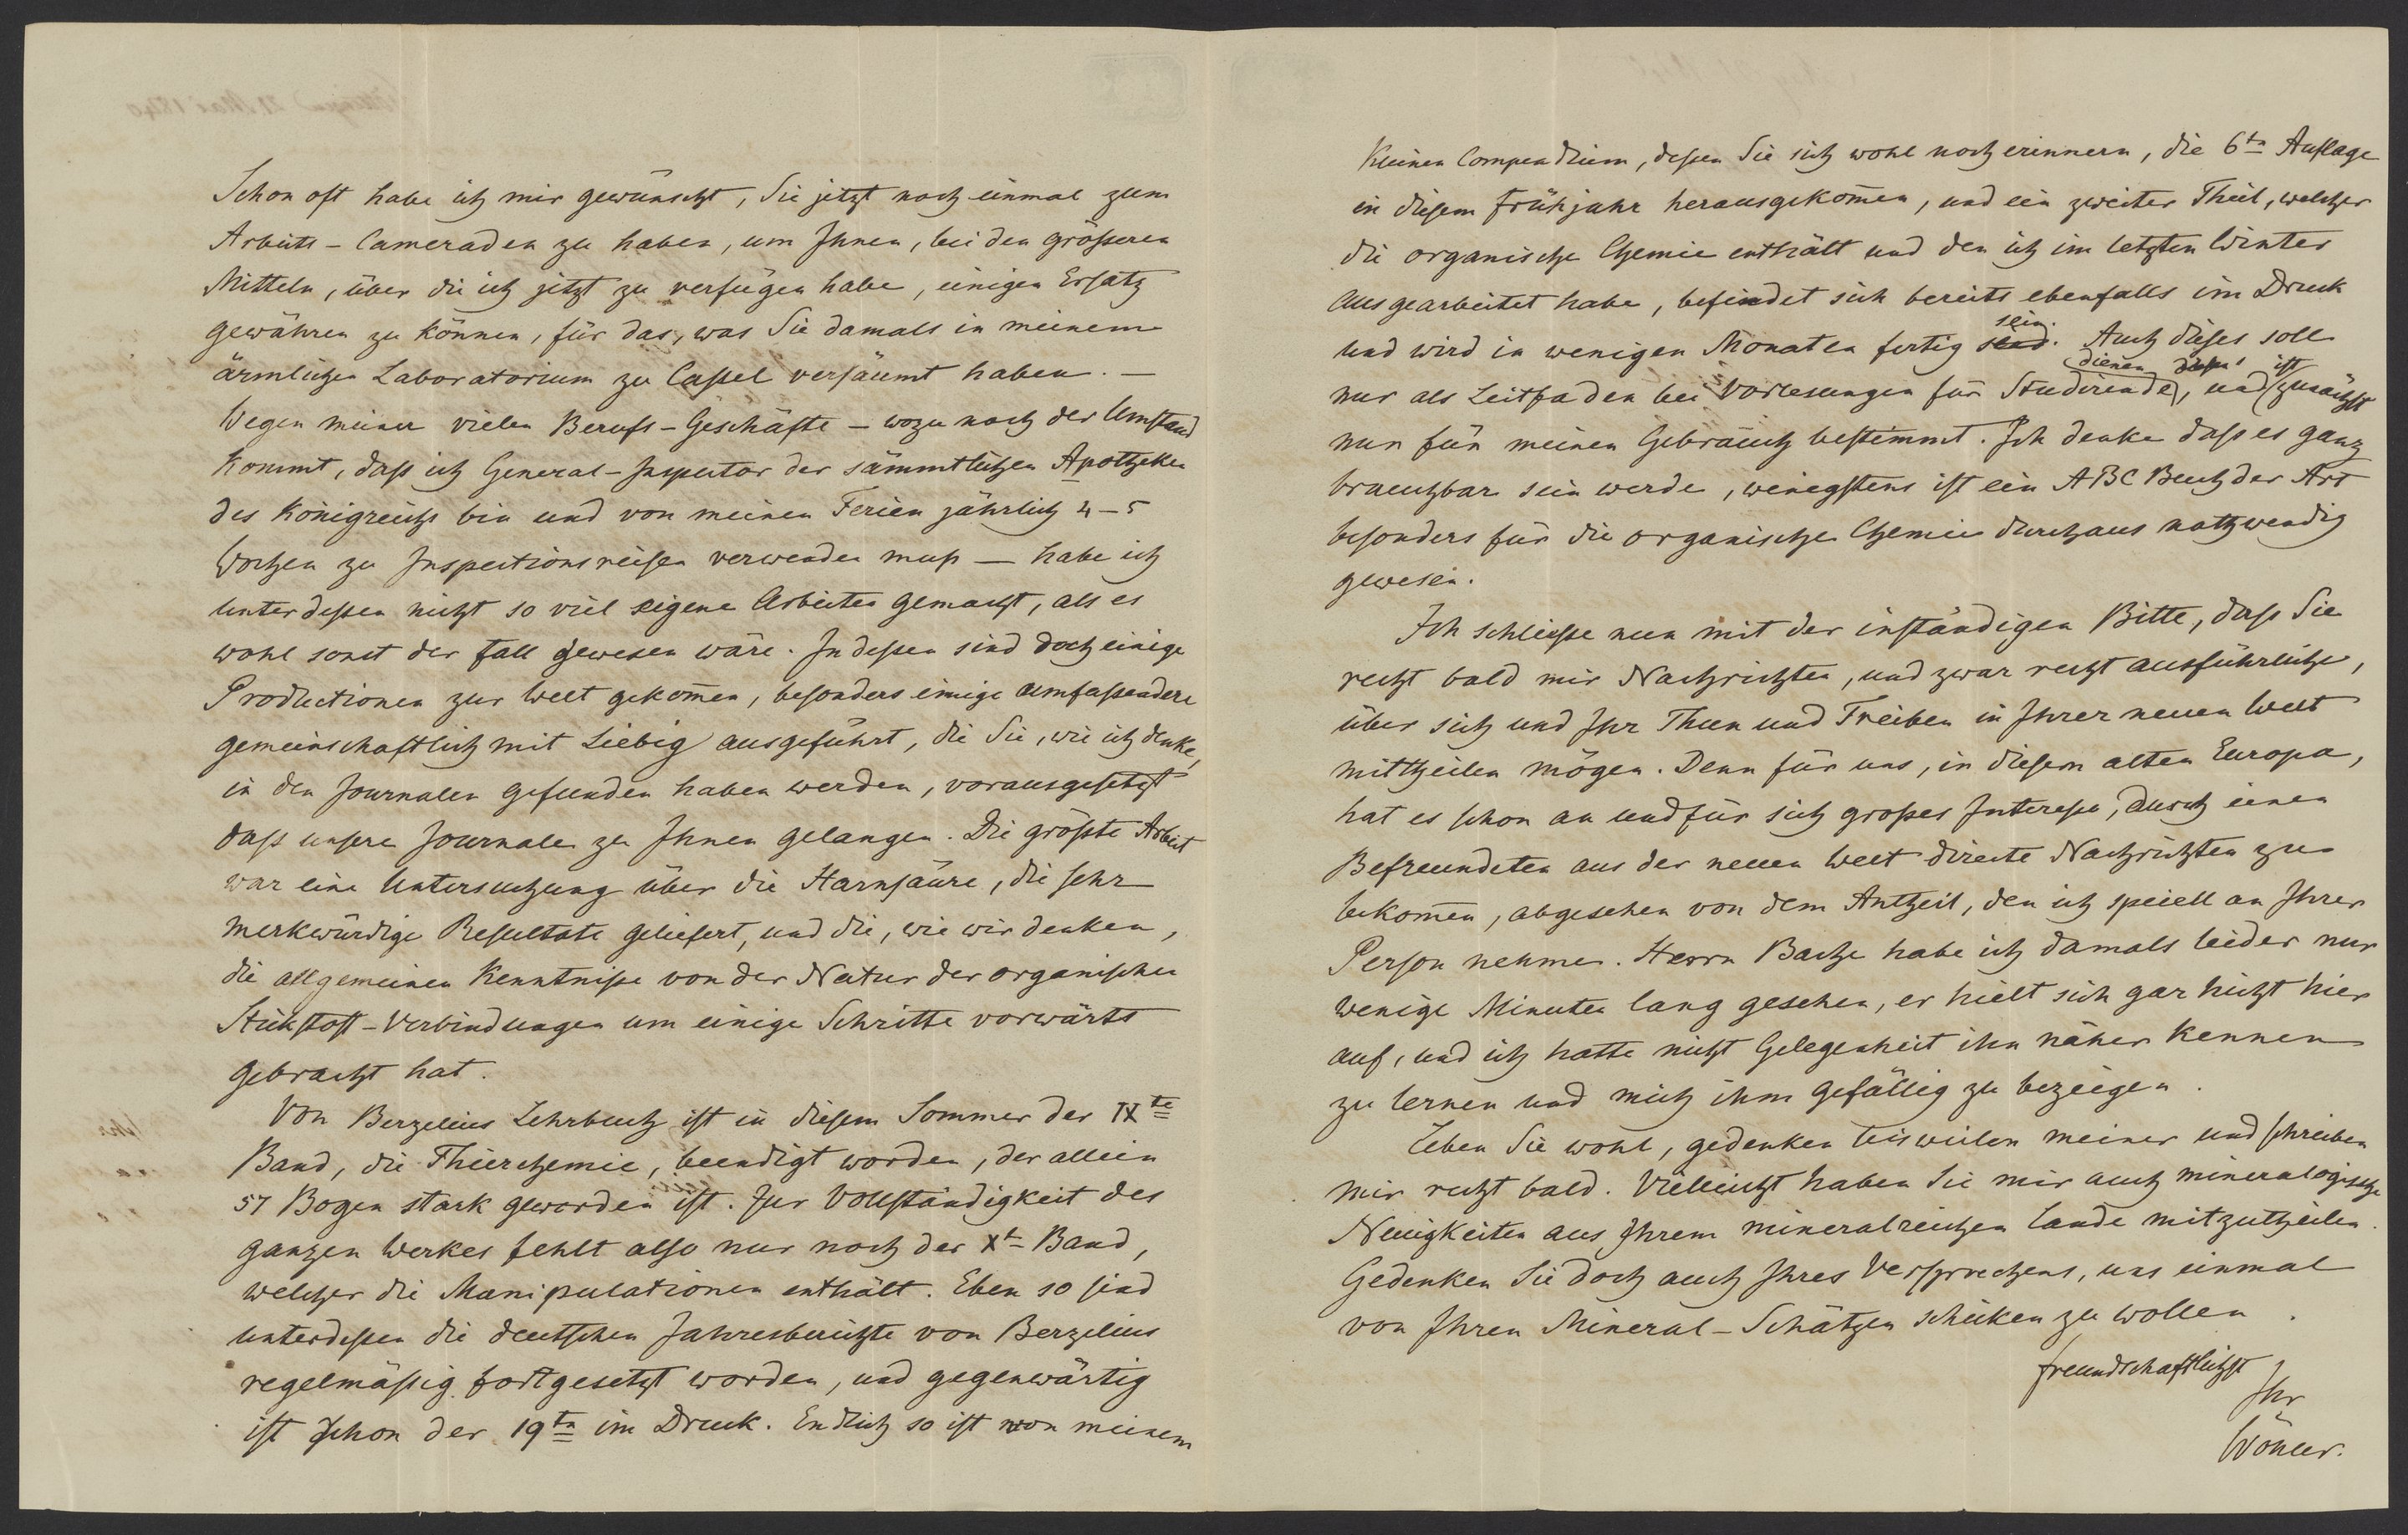 Schon oft habe ich mir gewünscht, Sie jetzt noch einmal zum
Arbeits-Cameraden zu haben, um Ihnen, bei den größeren
Mitteln, über die ich jetzt zu verfügen habe, einigen Ersatz
gewähren zu können, für das, was Sie damals in meinem
ärmlichen Laboratorium zu Cassel versäumt haben. —
Wegen meiner vielen Berufs-Geschäfte — wozu noch der Umstand
kommt, daß ich General-Inspector der sämmtlichen Apotheken
des Königreichs bin und von meinen Ferien jährlich 4–5
Wochen zu Inspectionsreisen verwenden muß — habe ich
unterdessen nicht so viel eigene Arbeiten gemacht, als es
wohl sonst der Fall gewesen wäre. Indessen sind doch einige
Productionen zur Welt gekom̄en, besonders einige umfassendere
gemeinschaftlich mit Liebig ausgeführt, die Sie, wie ich denke,
in den Journalen gefunden haben werden, vorausgesetzt
daß unsere Journale zu Ihnen gelangen. Die größte Arbeit
war eine Untersuchung über die Harnsäure, die sehr
merkwürdige Resultate geliefert, und die, wie wir denken,
die allgemeinen Kenntnisse von der Natur der organischen
Stickstoff-Verbindungen um einige Schritte vorwärts
gebracht hat.
Von Berzelius Lehrbuch ist in diesem Sommer der IXte
Band, die Thierchemie, beendigt worden, der allein
57 Bogen stark geworden ist. Zur Vollständigkeit des
ganzen Werkes fehlt also nur noch der Xte Band,
welcher die Manipulationen enthält. Eben so sind
unterdessen die deutschen Jahresberichte von Berzelius
regelmäßig fortgesetzt worden, und gegenwärtig
ist schon der 19te im Druck. Endlich so ist von meinem
kleinen Compendium, dessen Sie sich wohl noch erinnern, die 6te Auflage
in diesem Frühjahr herausgekom̄en, und ein zweiter Theil, welcher
die organische Chemie enthält und den ich im letzten Winter
ausgearbeitet habe, befindet sich bereits ebenfalls im Druck
und wird in wenigen Monaten fertig sein. Auch dieses soll
nur als Leitfaden bei Vorlesungen für Studirende dienen, und ist zunächst
nur für meinen Gebrauch bestimmt. Ich denke daß es ganz
brauchbar sein werde, wenigstens ist ein ABC Buch der Art
besonders für die organische Chemie durchaus nothwendig
gewesen.
Ich schließe nun mit der inständigen Bitte, daß Sie
recht bald mir Nachrichten, und zwar recht ausführliche,
über sich und Ihr Thun und Treiben in Ihrer neuen Welt
mittheilen mögen. Denn für uns, in diesem alten Europa,
hat es schon an und für sich großes Interesse, durch einen
Befreundeten aus der neuen Welt directe Nachrichten zu
bekom̄en, abgesehen von dem Antheil, den ich speciell an Ihrer
Person nehme. Herrn Bache habe ich damals leider nur
wenige Minuten lang gesehen, er hielt sich gar nicht hier
auf, und ich hatte nicht Gelegenheit ihn näher kennen
zu lernen und mich ihm gefällig zu bezeigen.
Leben Sie wohl, gedenken bisweilen meiner und schreiben
mir recht bald. Vielleicht haben Sie mir auch mineralogische
Neuigkeiten aus Ihrem mineralreichen Lande mitzutheilen.
Gedenken Sie doch auch Ihres Versprechens, uns einmal
von Ihren Mineral-Schätzen schicken zu wollen.
freundschaftlichst
Ihr
Wöhler.